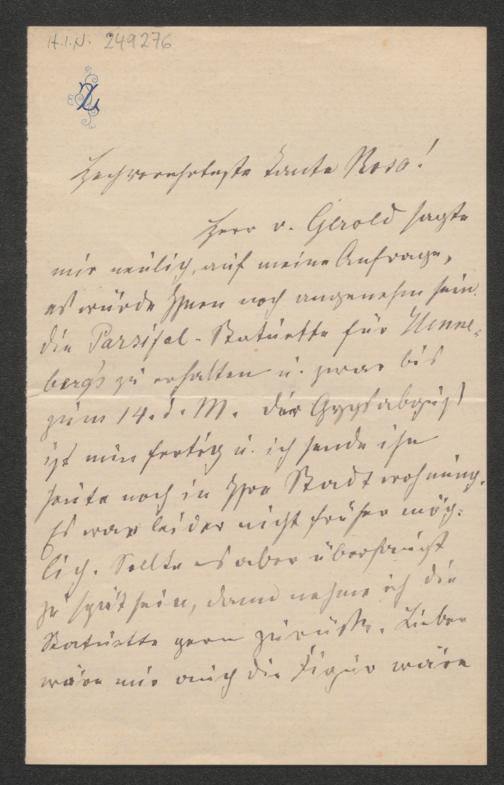 H.I.N. 249276
Z
Hochverehrteste Tante Rosa!
Herr v. Gerold sagte
mir neulich, auf meine Anfrage,
es würde Ihnen noch angenehm sein
die Parsifal-Statuette für Henne-
berg's zu erhalten u. zwar bis
zum 14. d. M. Der Gypsabguß
ist nun fertig u. ich sende ihn
heute noch in Ihre Stadtwohnung.
Es war leider nicht früher mög-
lich. Sollte es aber überhaupt
zu spät sein, dann nehme ich die
Statuette gern zurück. Lieber
wäre mir auch die Figur wäre